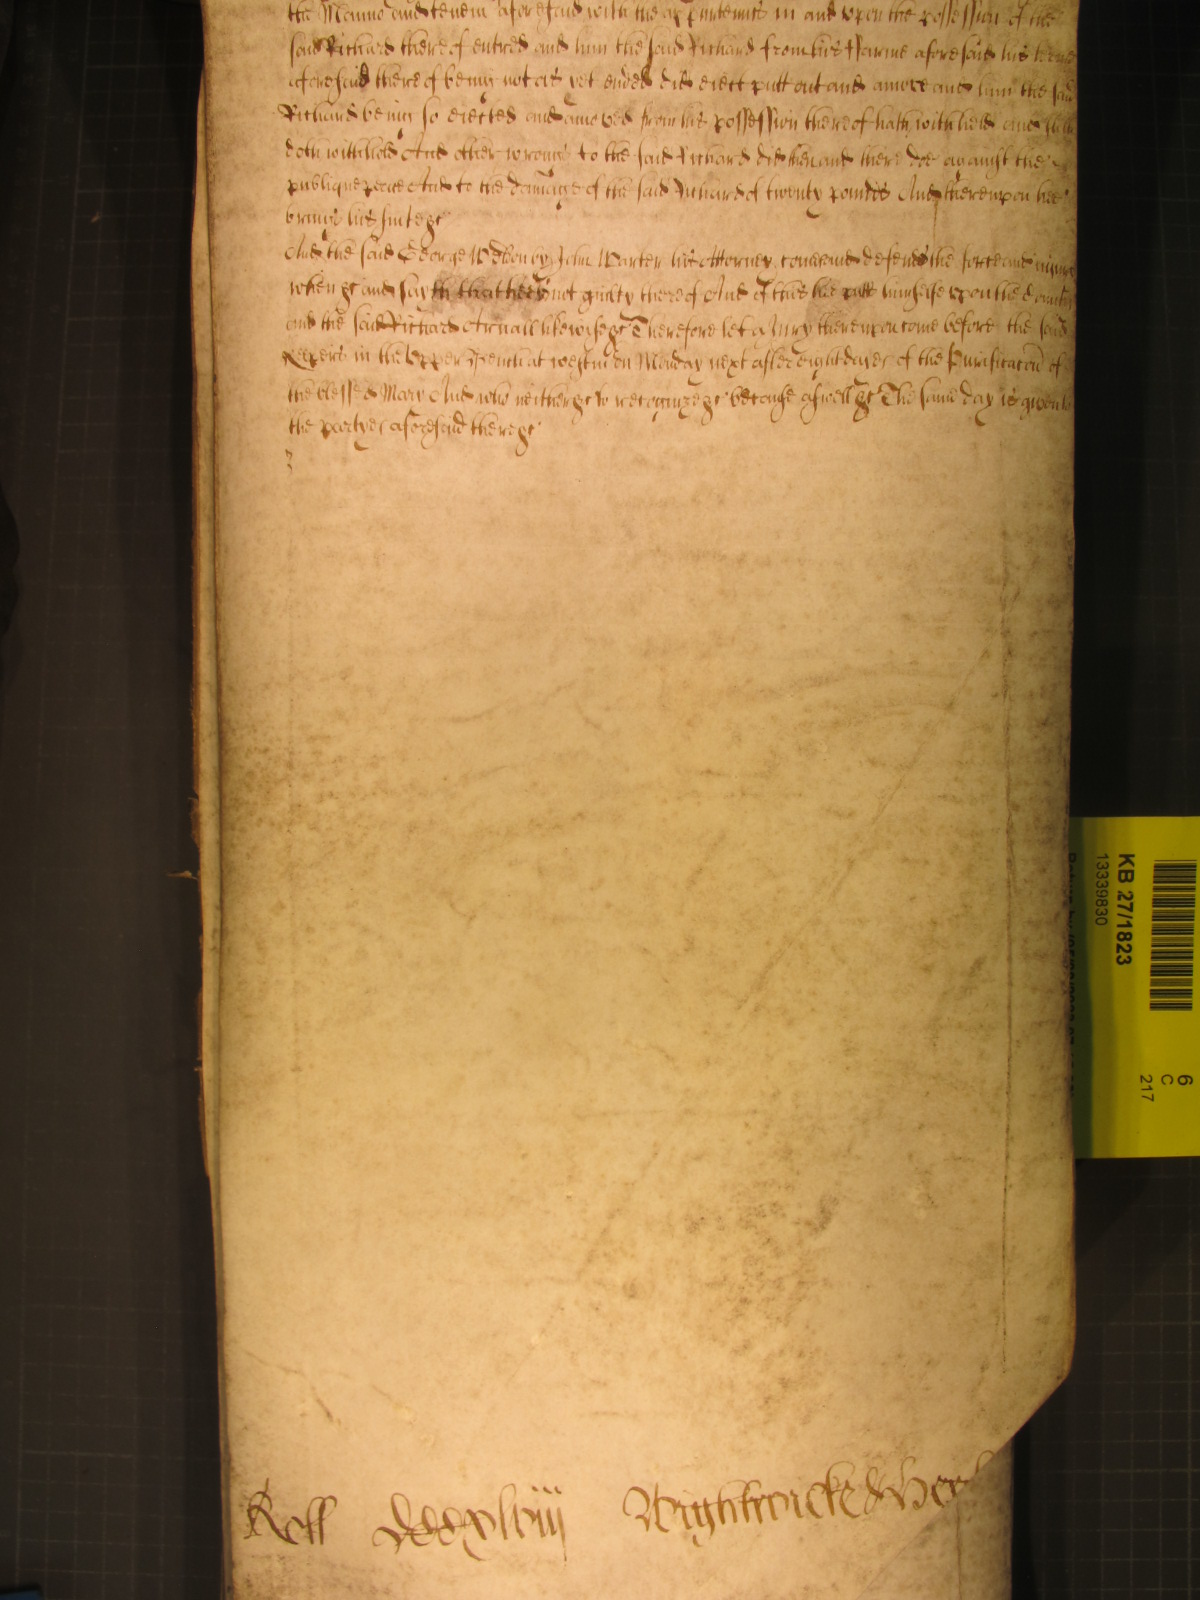 the Mannor and tenem aforesaid with the appurtennts in and upon the possession of the
said Richard thereof entred and him the said Richard from his Farme aforesaid his terme
aforesaid thereof being not as yet ended did eiect putt out and amove and him the said
Richard being so eiected and amoved from his possession thereof hath withheld and still
doth withhold And other wrongs to the said Richard did then and there doe against the
publique peace And to the damage of the said Richard of twenty pounds And thereupon hee
brings his suite &c
And the said George by John his Attorney comes and defends the force and iniury
when &c and sayth that hee is not guilty thereof And of this hee putts himselfe upon the Country
and the said Richard likewise &c Therefore let a Jury thereupon come before the said
Keepers in the Upper Bench at Westm on Monday next after eight dayes of the Purificacon of
the blessed Mary And who neither &c to recognize &c because aswell &c The same day is given to
the partyes aforesaid there &c
Roll
KB 27/1823
13339830
6
C
217